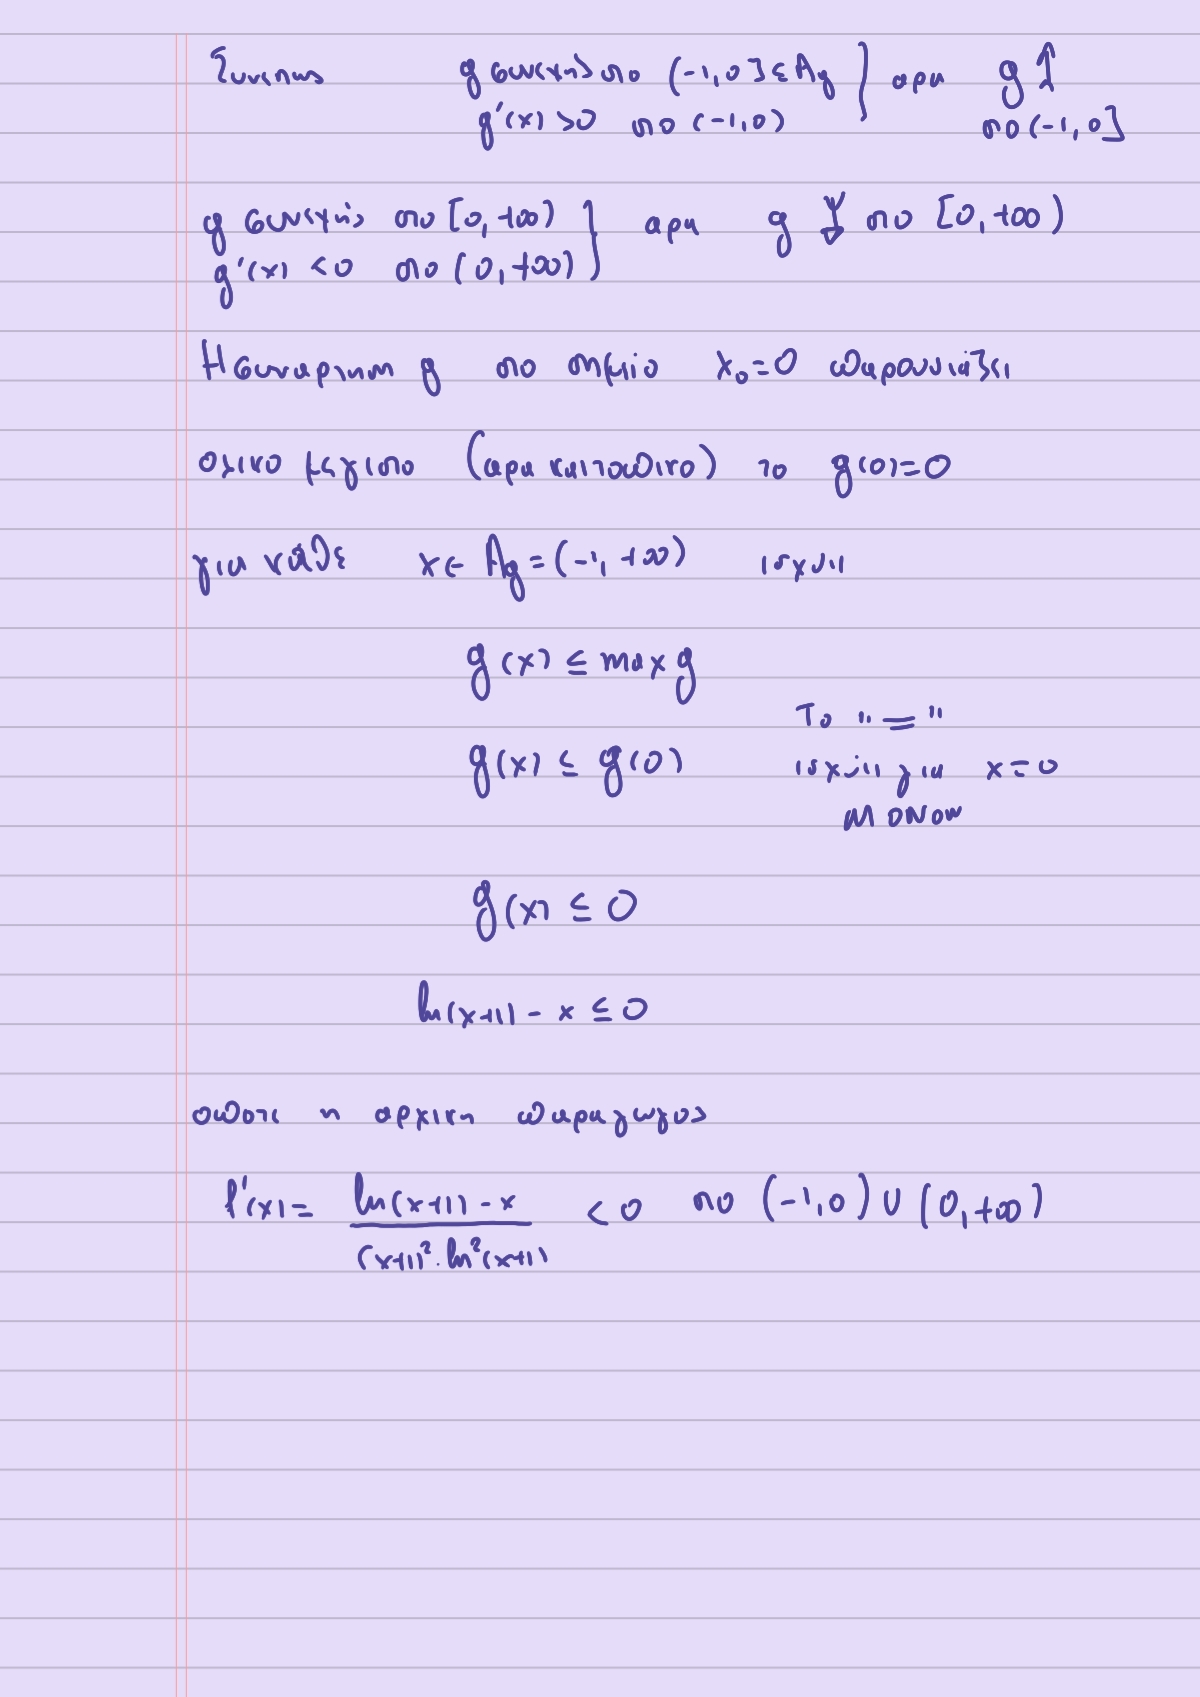 Συνεπως g συνεχης στο (-1,0] ε Ag } αρα g ↑
g'(x) >0 στο (-1,0) στο (-1,0]
g συνεχής στο [0,+∞) } αρα g ↓ στο [0,+∞)
g'(x) <0 στο (0,+∞)
Η συναρτηση g στο σημείο x₀=0 παρουσιάζει
ολικο μεγιστο (αρα και τοπικο) το g(0)=0
για κάθε x∈ Ag = (-1,+∞) ισχύει
g(x) ≤ max g
Το "="
g(x) ≤ g(0) ισχύει για x=0
ΜΟΝΟΝ
g(x) ≤ 0
ln(x+1) - x ≤ 0
οποτε η αρχικη παραγωγος
f'(x) = \frac{ln(x+1) - x}{(x+1)²·ln²(x+1)} <0 στο (-1,0)∪(0,+∞)